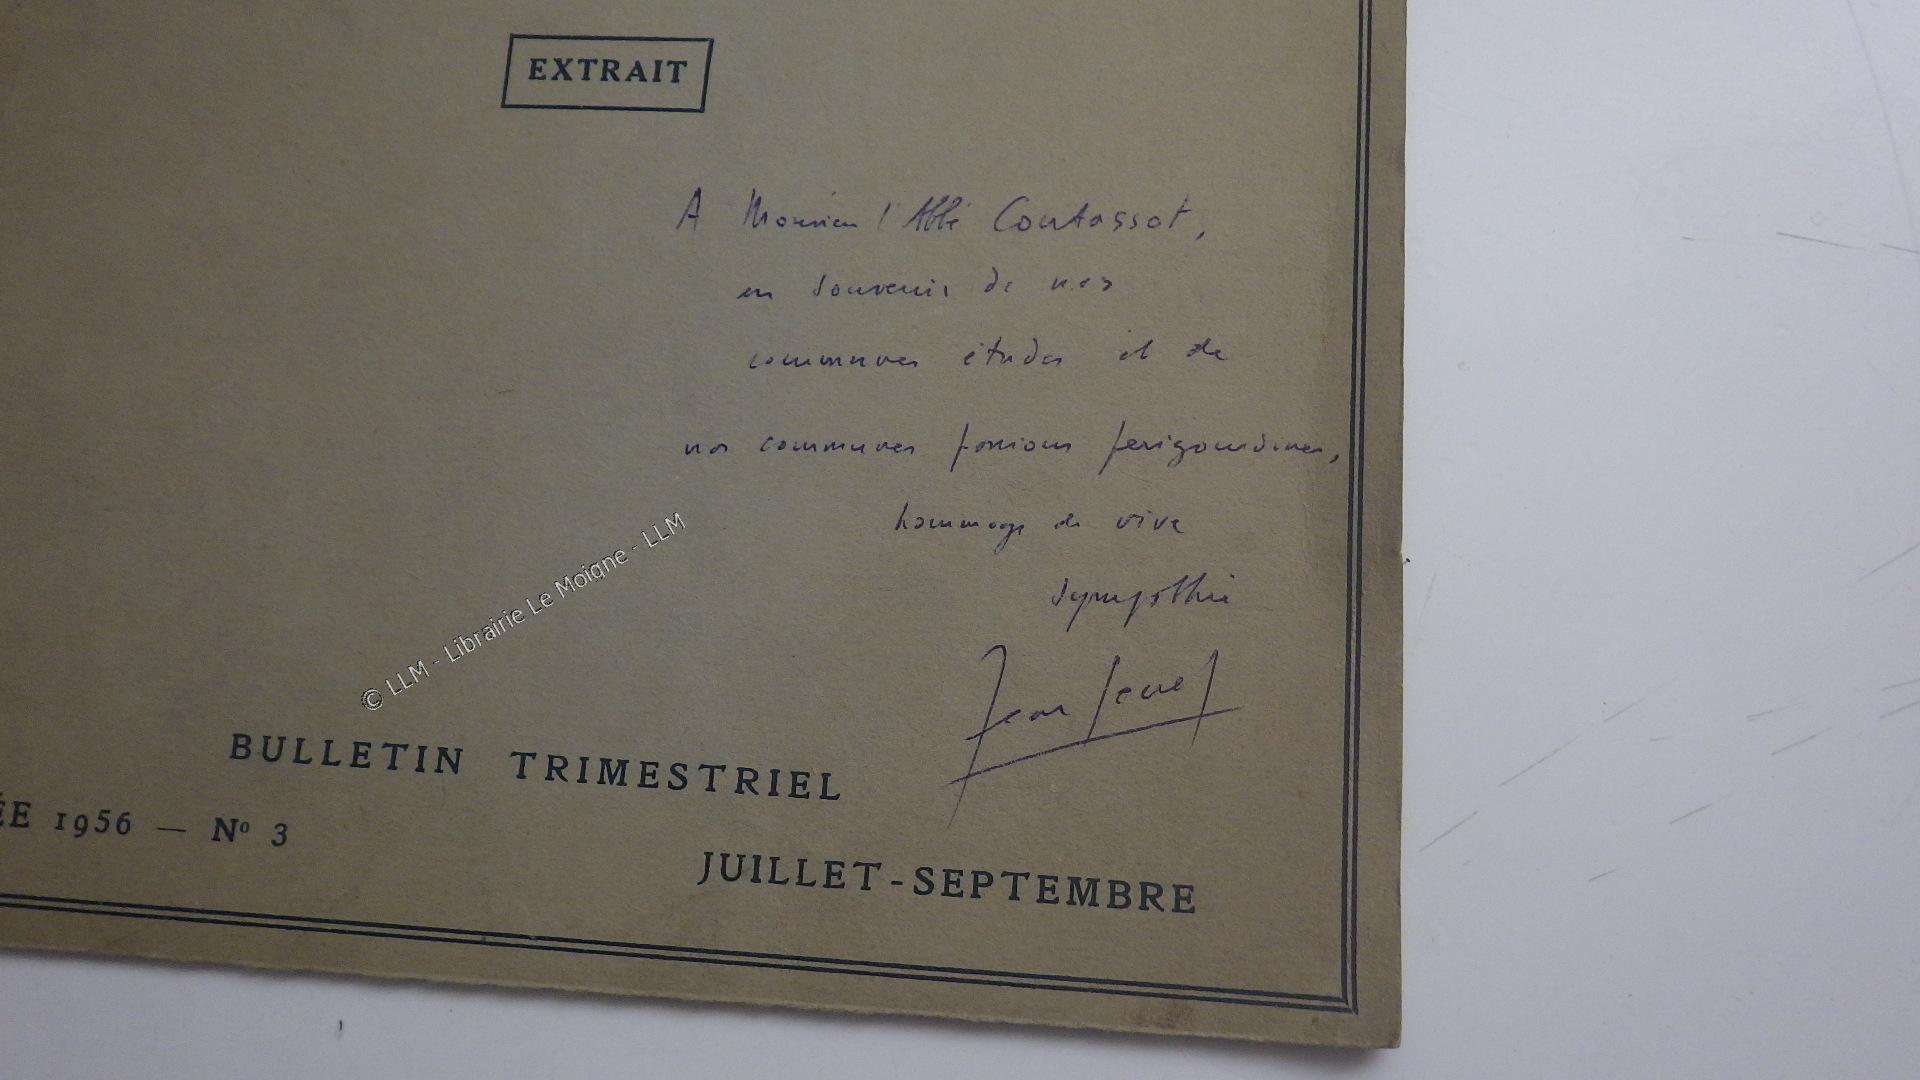 EXTRAIT
A Monsieur l'Abbé Contassot,
en souvenir de nos
communes études et de
nos communes passions périgourdines,
hommage de vive
sympathie
Jean
© LLM - Librairie Le Moigne - LLM
BULLETIN TRIMESTRIEL
ÉE 1956 — Nº 3
JUILLET-SEPTEMBRE